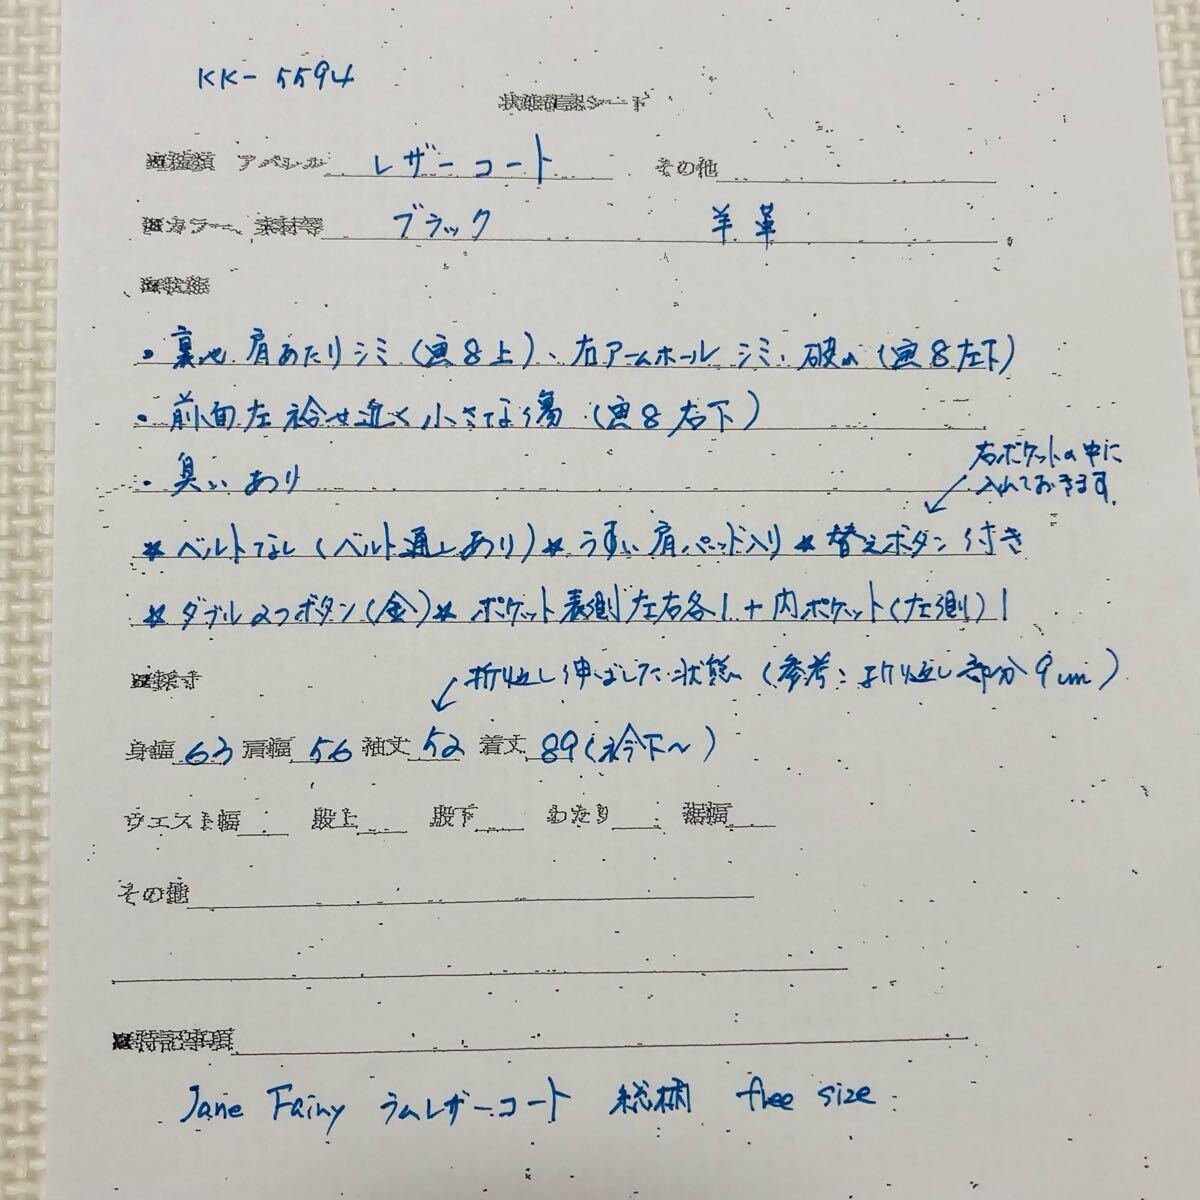 KK-5594
状態確認シート
■種類 アパレル レザーコート その他
■カラー、素材等 ブラック 羊革
■状態
・裏地 肩あたりシミ(画8上)、右アームホール シミ・破れ(画8左下)
・前面左 袷せ近く小さな傷(画8右下)
右ポケットの中に
入れておきます。
・臭いあり
*ベルトなし(ベルト通しあり)*うすい肩パッド入り *替えボタン付き
*ダブル2つボタン(金)* ポケット表側左右各1+内ポケット(左側)1
折り返し伸ばした状態 (参考:折り返し部分9cm)
■採寸
身幅 63 肩幅 56 袖丈 52 着丈 89(衿下~)
ウエスト幅 股上 股下 わたり 裾幅
その他
■特記事項
Jane Fairy ラムレザーコート 総柄 free size